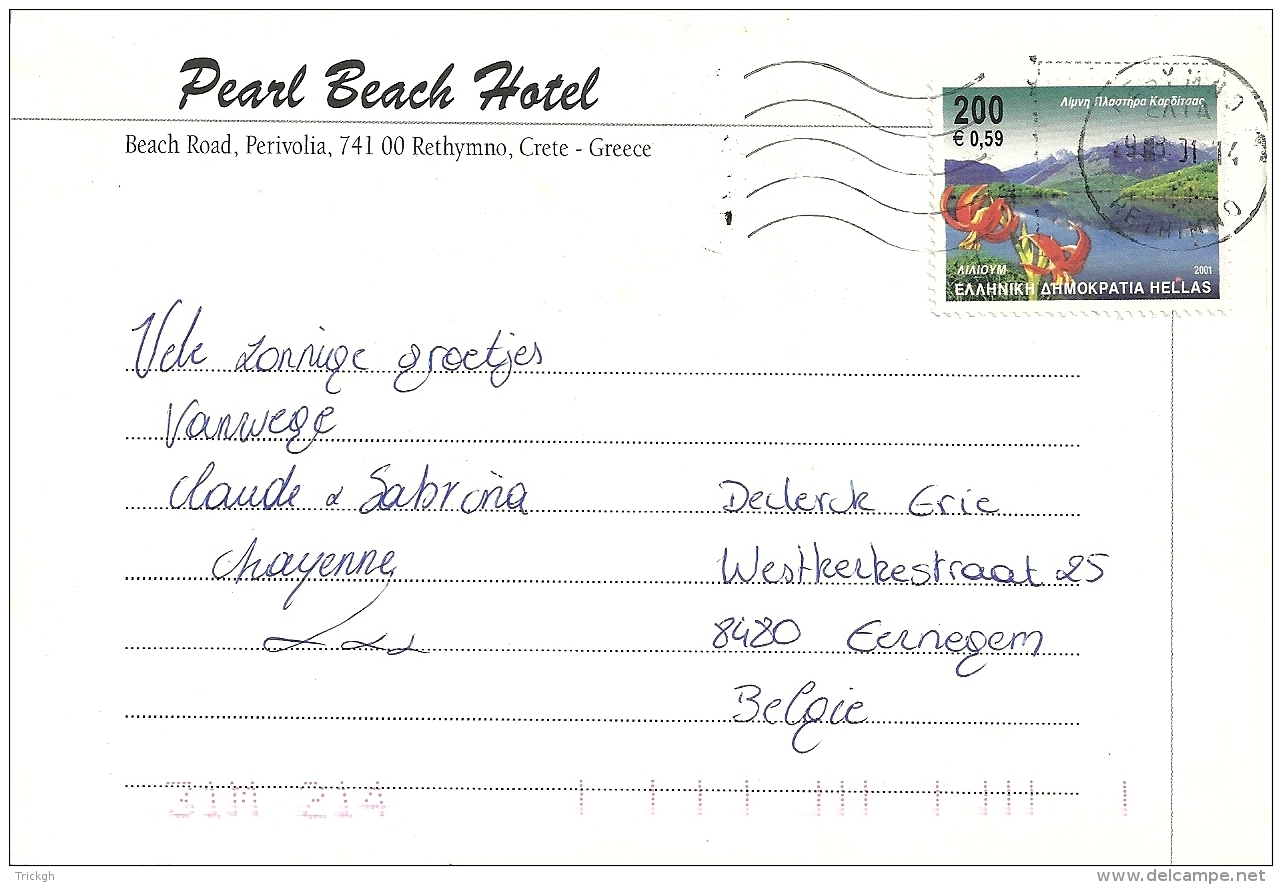 Pearl Beach Hotel
Beach Road, Perivolia, 741 00 Rethymno, Crete - Greece
200
€ 0,59
Λίμνη Πλαστήρα Καρδίτσας
ΛΙΛΙΟΥΜ
2001
ΕΛΛΗΝΙΚΗ ΔΗΜΟΚΡΑΤΙΑ HELLAS
RETHIMNO
Vele zonnige groetjes
vanwege
Claude & Sabrina
Chayenne
xxx
Declerck Eric
Westkerkestraat 25
8480 Eernegem
Belgie
31M 214
Trickgh
www.delcampe.net